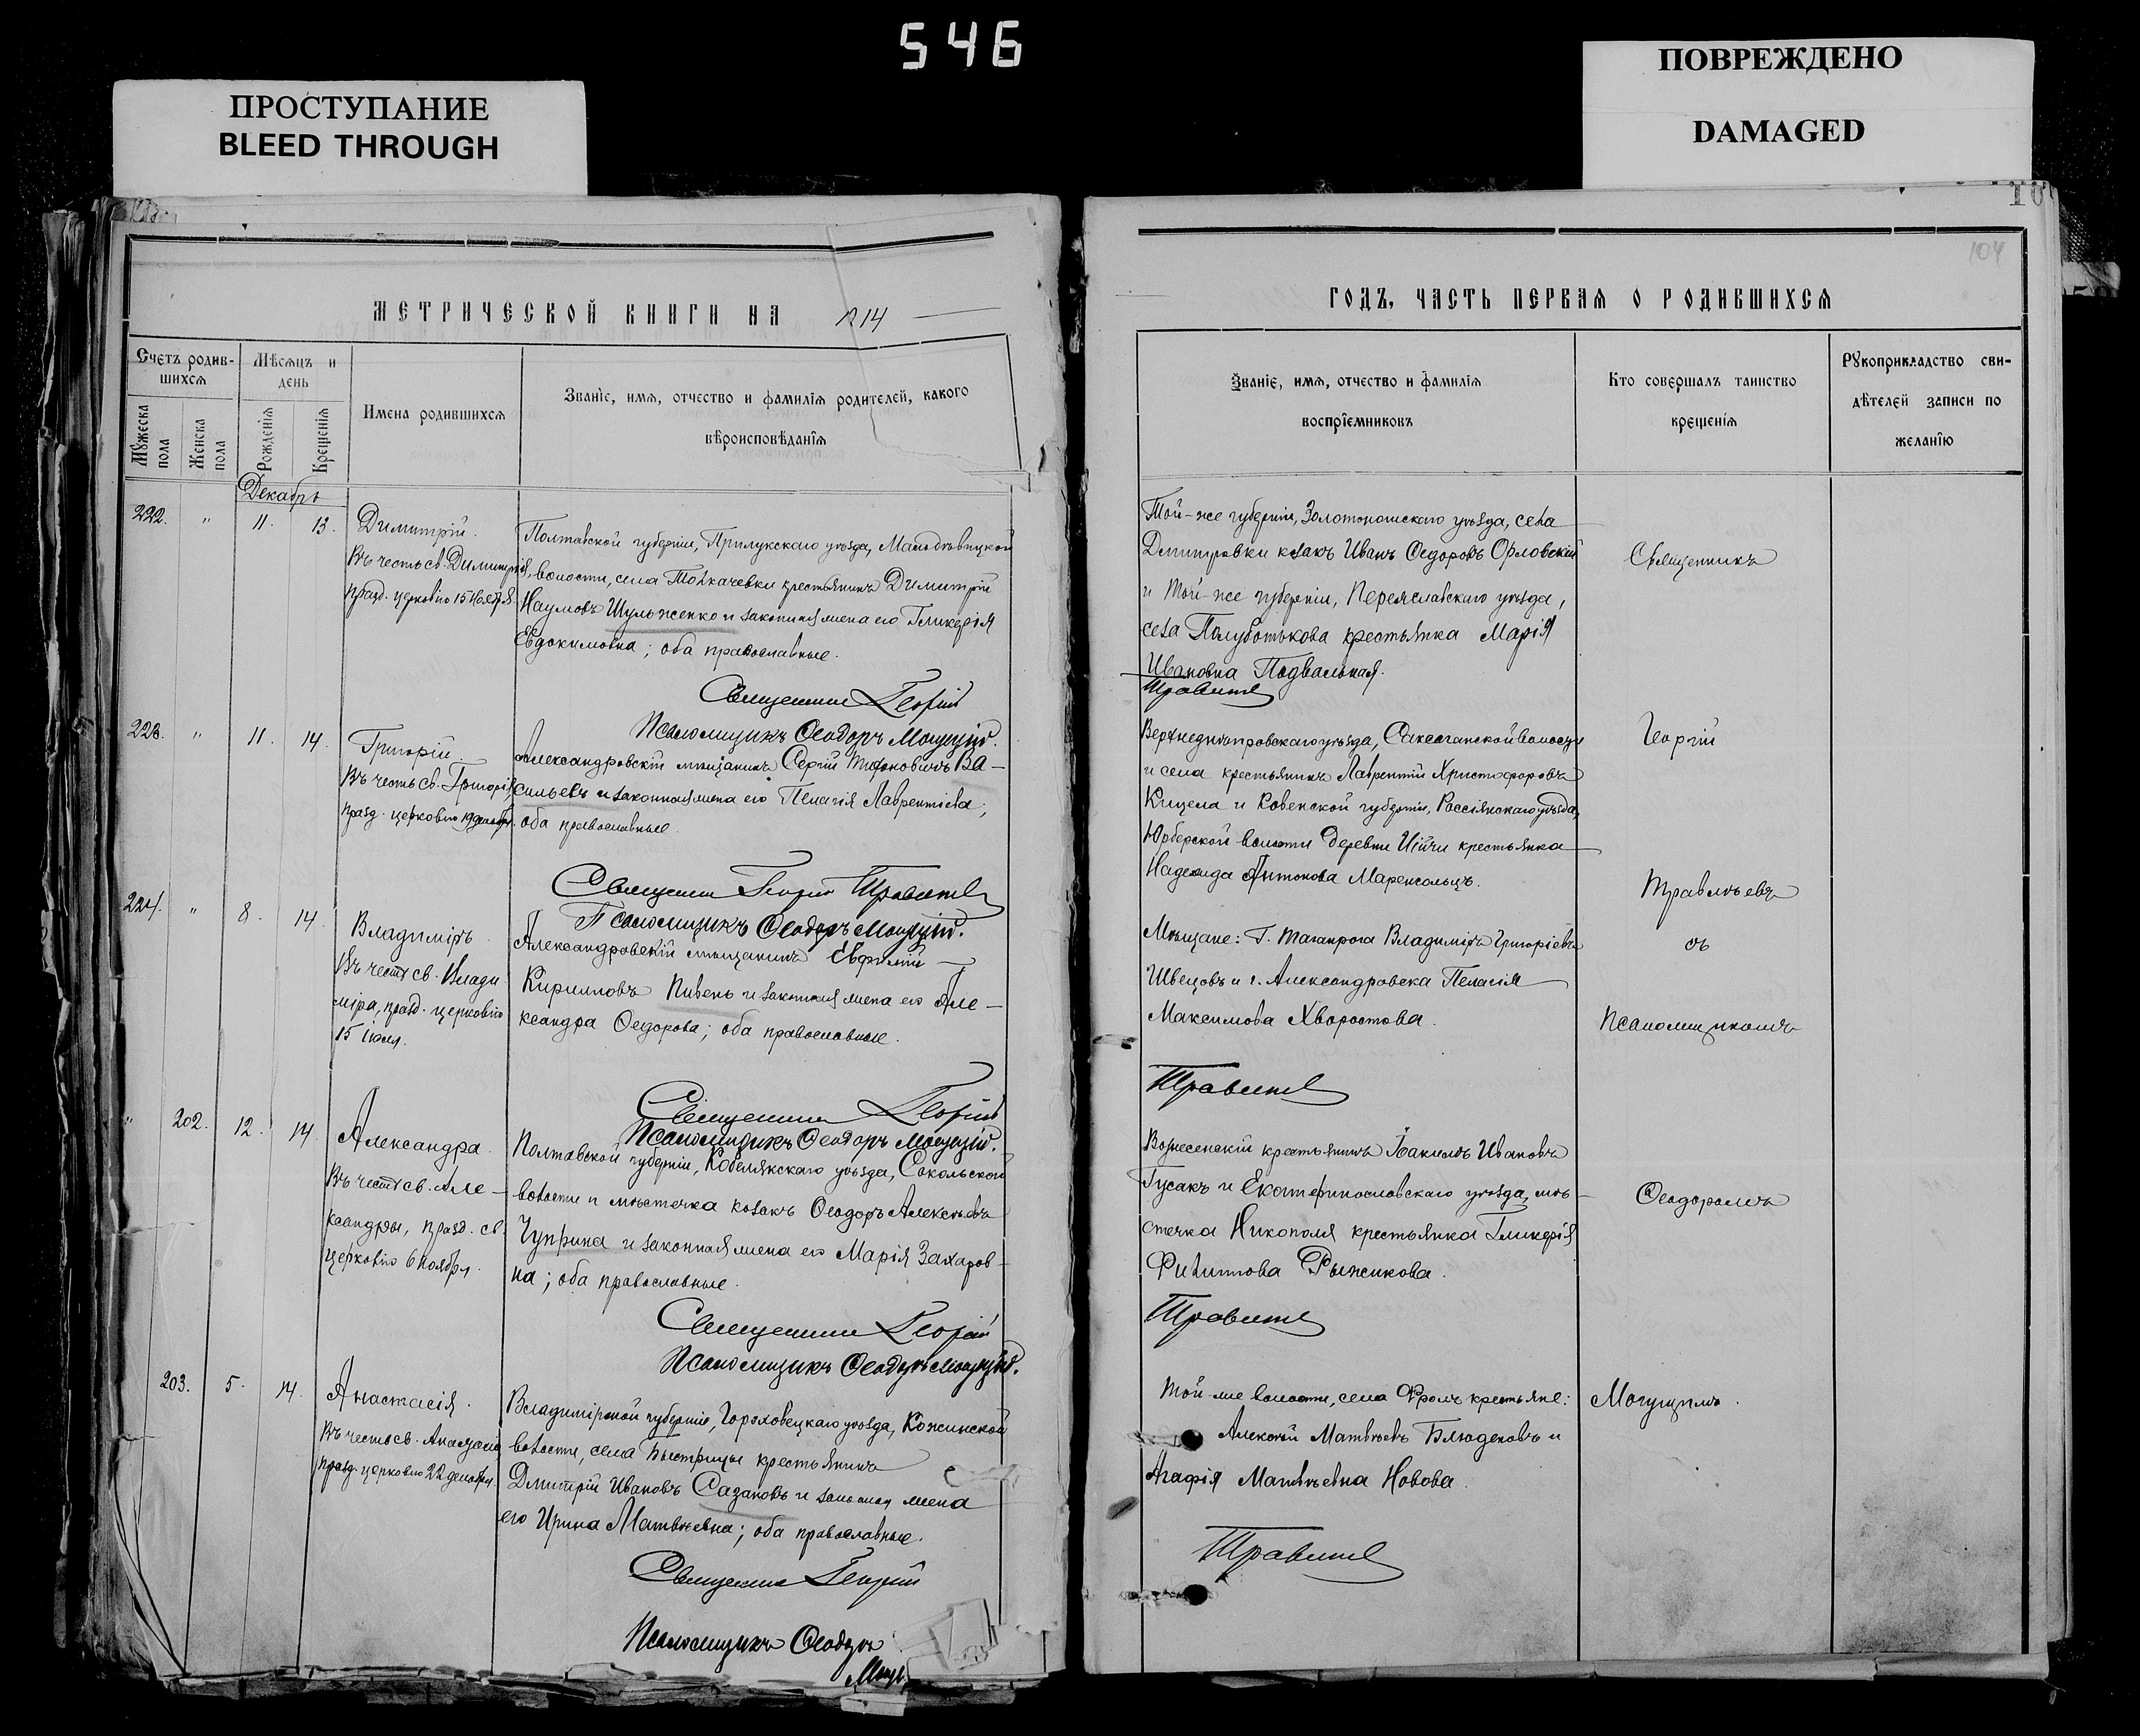 546
ПРОСТУПАНИЕ
BLEED THROUGH
ПОВРЕЖДЕНО
DAMAGED
10
104
МЕТРИЧЕСКОЙ КНИГИ НА 1914
Счетъ родив-
шихся
Мѣсяцъ и
день
Мужеска
пола
Женска
пола
Рожденія
Крещенія
Имена родившихся
Званіе, имя, отчество и фамилія родителей, какого
вѣроисповѣданія
Декабрь
222. " 11. 13.
Димитрій.
Въ честь св. Димитрія,
празд. церковію
Полтавской губерніи, Прилукскаго уѣзда, Малодѣвицкой
волости, села Толкачевки крестьянинъ Димитрій
Наумовъ Шульженко и законная жена его Гликерія
Евдокимовна; оба православные.
Священник Георгій
Псаломщикъ Ѳеодоръ Могущій.
223. " 11. 14.
Григорій
Въ честь св. Григорія,
празд. церковію
Александровскій мѣщанинъ Сергій Ва-
сильевъ и законная жена его Пелагія Лаврентіева;
оба православные.
Священник Георгій
Псаломщикъ Ѳеодоръ Могущій.
224. " 8. 14.
Владиміръ
Въ честь св. Влади
міра, празд. церковію
15 іюля.
Александровскій мѣщанинъ Евфимій
Кирилловъ Пивень и законная жена его Але-
ксандра Ѳедорова; оба православные.
Священник Георгій
Псаломщикъ Ѳеодоръ Могущій.
" 202. 12. 14.
Александра.
Въ честь св. Але-
ксандры, празд. св.
церковію 6 ноября.
Полтавской губерніи, Кобелякскаго уѣзда, Сокольской
волости и мѣстечка козакъ Ѳеодоръ Алексѣевъ
Чуприна и законная жена его Марія Захаров-
на; оба православные.
Священник Георгій
Псаломщикъ Ѳеодоръ Могущій.
203. 5. 14.
Анастасія.
Въ честь св. Анастасіи,
празд. церковію 22 декабря.
Владимірской губерніи, Гороховецкаго уѣзда, Кожинской
волости, села Быстрицы крестьянинъ
Дмитрій Ивановъ Сазановъ и законная жена
его Ирина Матвѣевна; оба православные.
Священник Георгій
Псаломщикъ Ѳеодоръ
ГОДЪ, ЧАСТЬ ПЕРВАЯ О РОДИВШИХСЯ
Званіе, имя, отчество и фамилія
воспріемниковъ
Кто совершалъ таинство
крещенія
Рукоприкладство сви-
дѣтелей записи по
желанію
Той-же губерніи, Золотоношскаго уѣзда, села
Дмитровки козакъ Иванъ Ѳедоровъ Орловскій
и той-же губерніи, Переяславскаго уѣзда,
села крестьянка Марія
Ивановна Подвальная.
Верхнеднѣпровскаго уѣзда, Саксаганской волости
и села крестьянинъ Лаврентій Христофоровъ
Кицела и Ковенской губерніи, Россіянскаго уѣзда,
волости деревни крестьянка
Надежда Антонова
Мѣщане: г. Таганрога Владиміръ Григоріевъ
Швецовъ и г. Александровска Пелагія
Максимова Хворостова.
Вознесенскій крестьянинъ Іоакимъ Ивановъ
Гусакъ и Екатеринославскаго уѣзда, мѣ-
стечка Никополя крестьянка Гликерія
Филиппова Рыжикова.
Той-же волости, села крестьяне:
Алексѣй Матвѣевъ и
Агафія Матвѣевна Новова.
Священникъ
Георгій
Травлѣевъ
съ
псаломщикомъ
Ѳеодоромъ
Могущимъ.